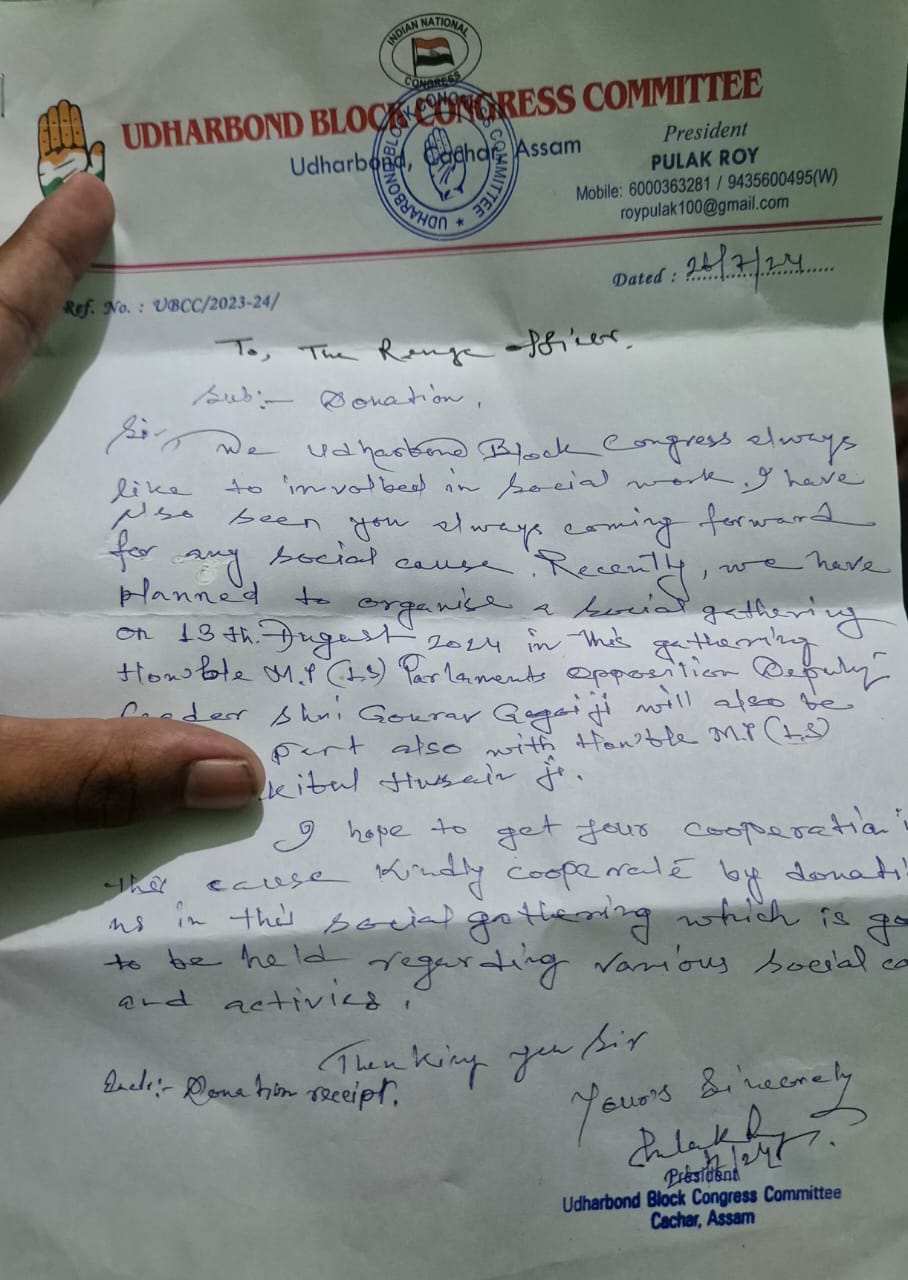 INDIAN NATIONAL
CONGRESS
UDHARBOND BLOCK CONGRESS COMMITTEE
Udharbond, Cachar, Assam
UDHARBOND BLOCK CONGRESS COMMITTEE
President
PULAK ROY
Mobile: 6000363281 / 9435600495(W)
roypulak100@gmail.com
Dated : /7/24
Ref. No. : UBCC/2023-24/
To, The Range officer.
Sub:- Donation,
Sir, We Udharbond Block Congress always
like to involbed in social work. I have
also seen you always coming forward
for any social cause. Recently, we have
planned to organise a social gathering
on 13th. August 2024 in this gathering
Hon'ble M.P (L.S) Parlaments opposition Deputy
Leader Shri Gourav Gogoi ji will also be
part also with Hon'ble M.P (L.S)
kibul Hussain ji.
I hope to get your cooperation
this cause Kindly cooperate by donati
ns in this social gathering which is go
to be held regarding various social ca
and activies.
Thanking you Sir
Encl:- Donation receipt.
Your's Sincerely
Pulak Roy
/24
President
Udharbond Block Congress Committee
Cachar, Assam